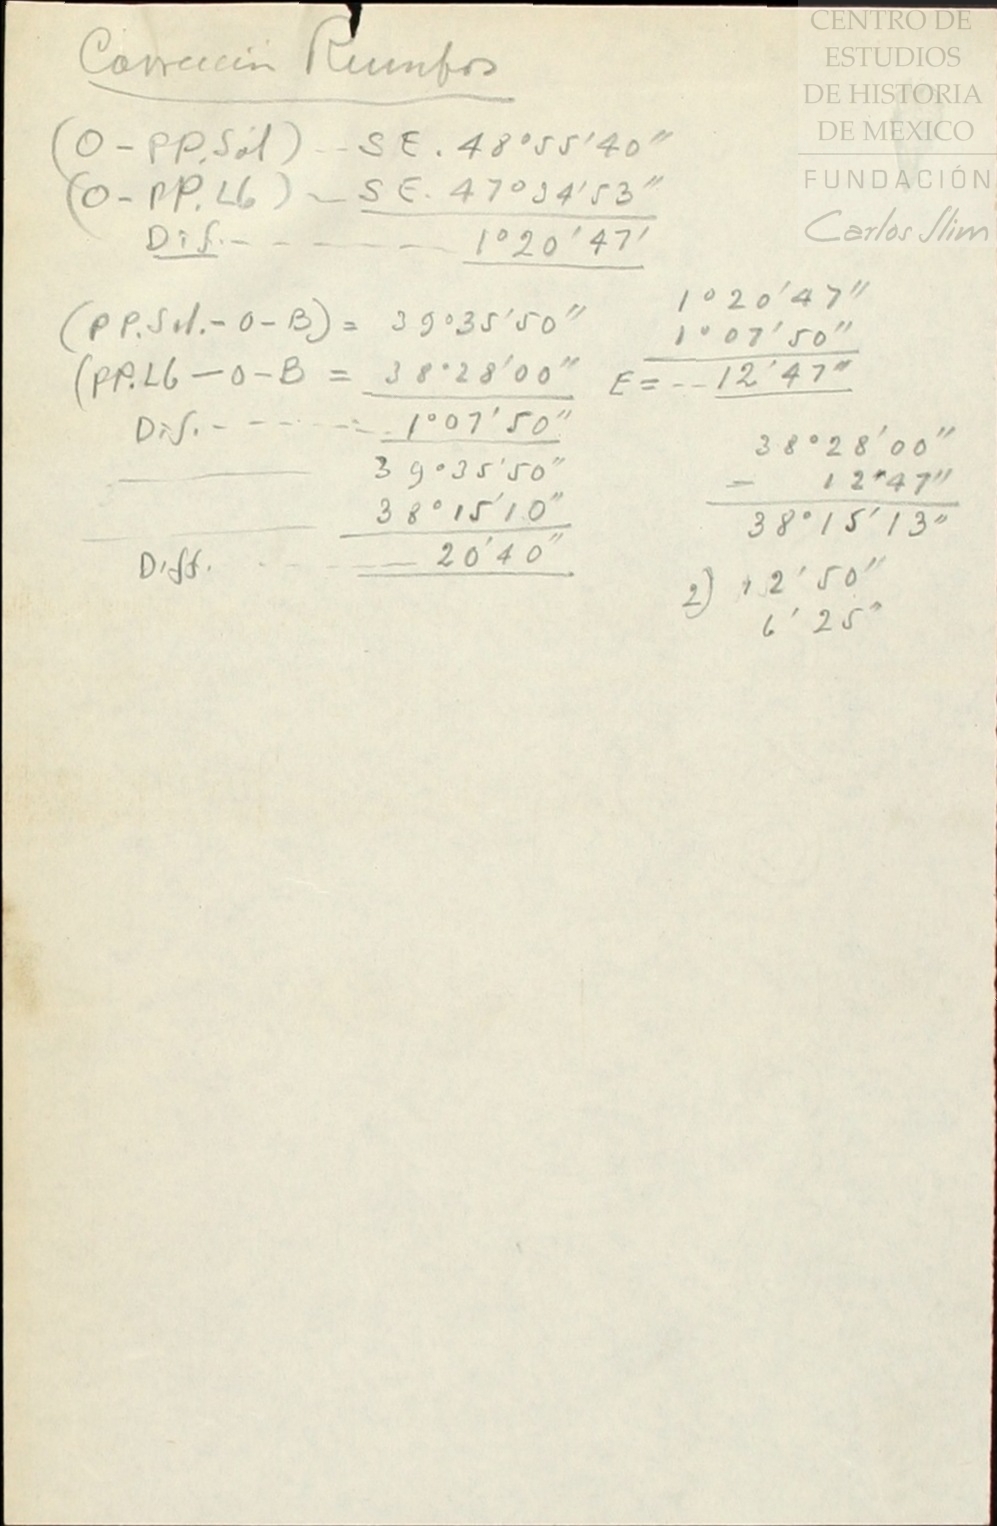 Corrección Rumbos
(O-PP.Sol) -- SE. 48°55'40"
(O-PP.L6) -- SE. 47°34'53"
Dif.- - - - - - - 1°20'47'
(PP.Sol.-O-B) = 39°35'50"
(PP.L6-O-B = 38°28'00"
Dif.- - - - - = 1°07'50"
39°35'50"
38°15'10"
Diff. - - - - 20'40"
1°20'47"
1°07'50"
E=--12'47"
38°28'00"
- 12"47"
38°15'13"
2) 12'50"
6'25"
CENTRO DE
ESTUDIOS
DE HISTORIA
DE MEXICO
FUNDACIÓN
Carlos Slim